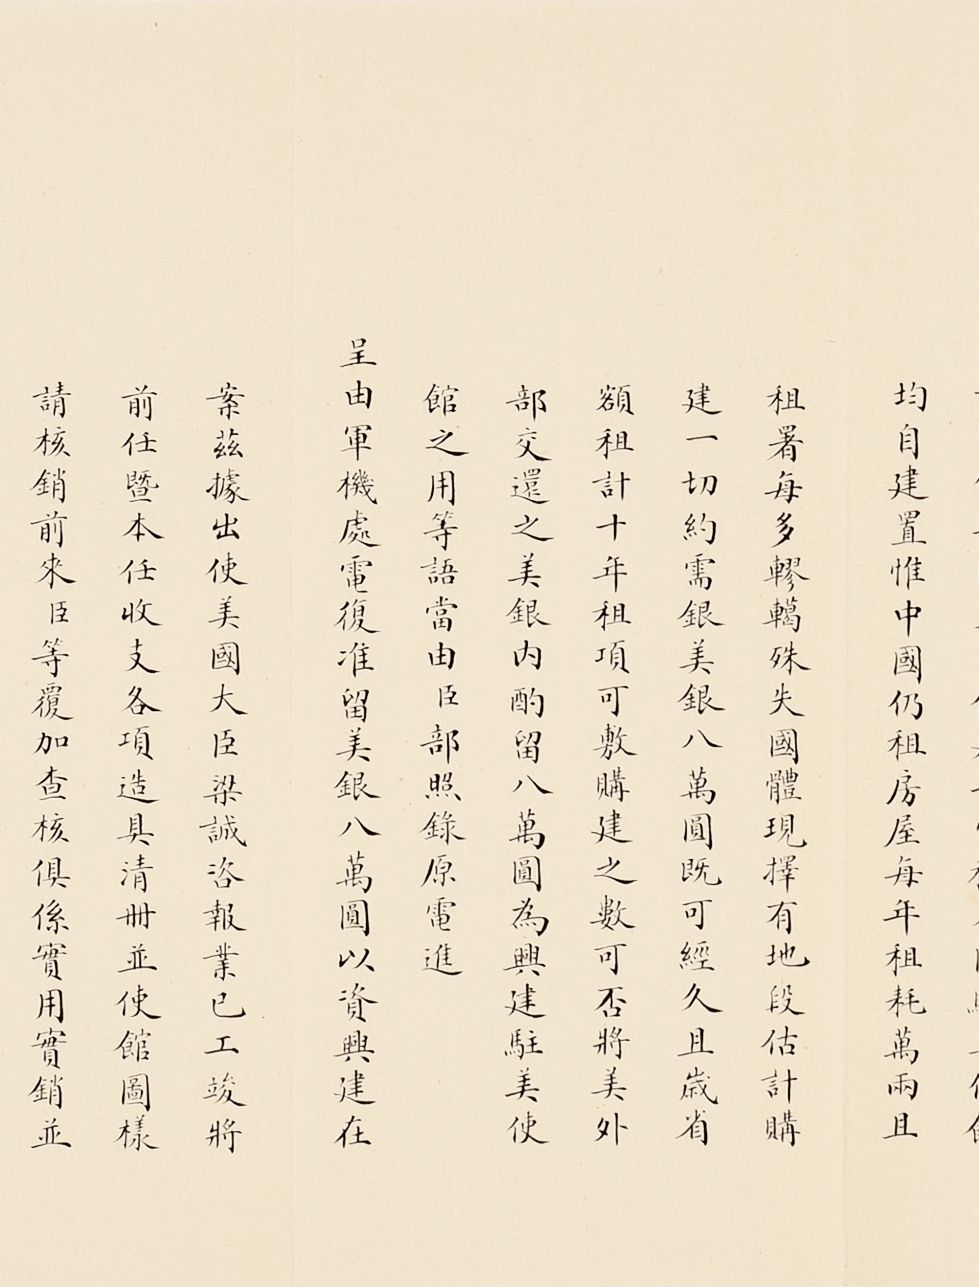 均自建置惟中國仍租房屋每年租耗萬兩且
租署每多轇轕殊失國體現擇有地段估計購
建一切約需銀美銀八萬圓既可經久且歲省
額租計十年租項可敷購建之數可否將美外
部交還之美銀内酌留八萬圓為興建駐美使
館之用等語當由臣部照錄原電進
呈由軍機處電復准留美銀八萬圓以資興建在
案茲據出使美國大臣梁誠咨報業已工竣將
前任暨本任收支各項造具清冊並使館圖樣
請核銷前來臣等覆加查核俱係實用實銷並